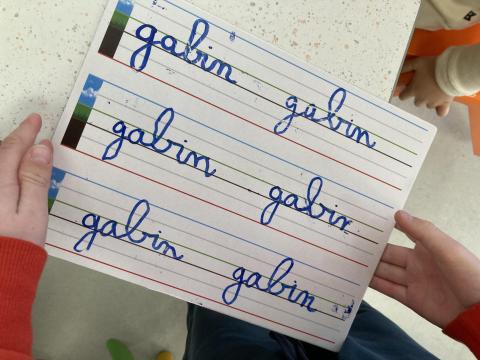 gabin gabin
gabin gabin
gabin gabin